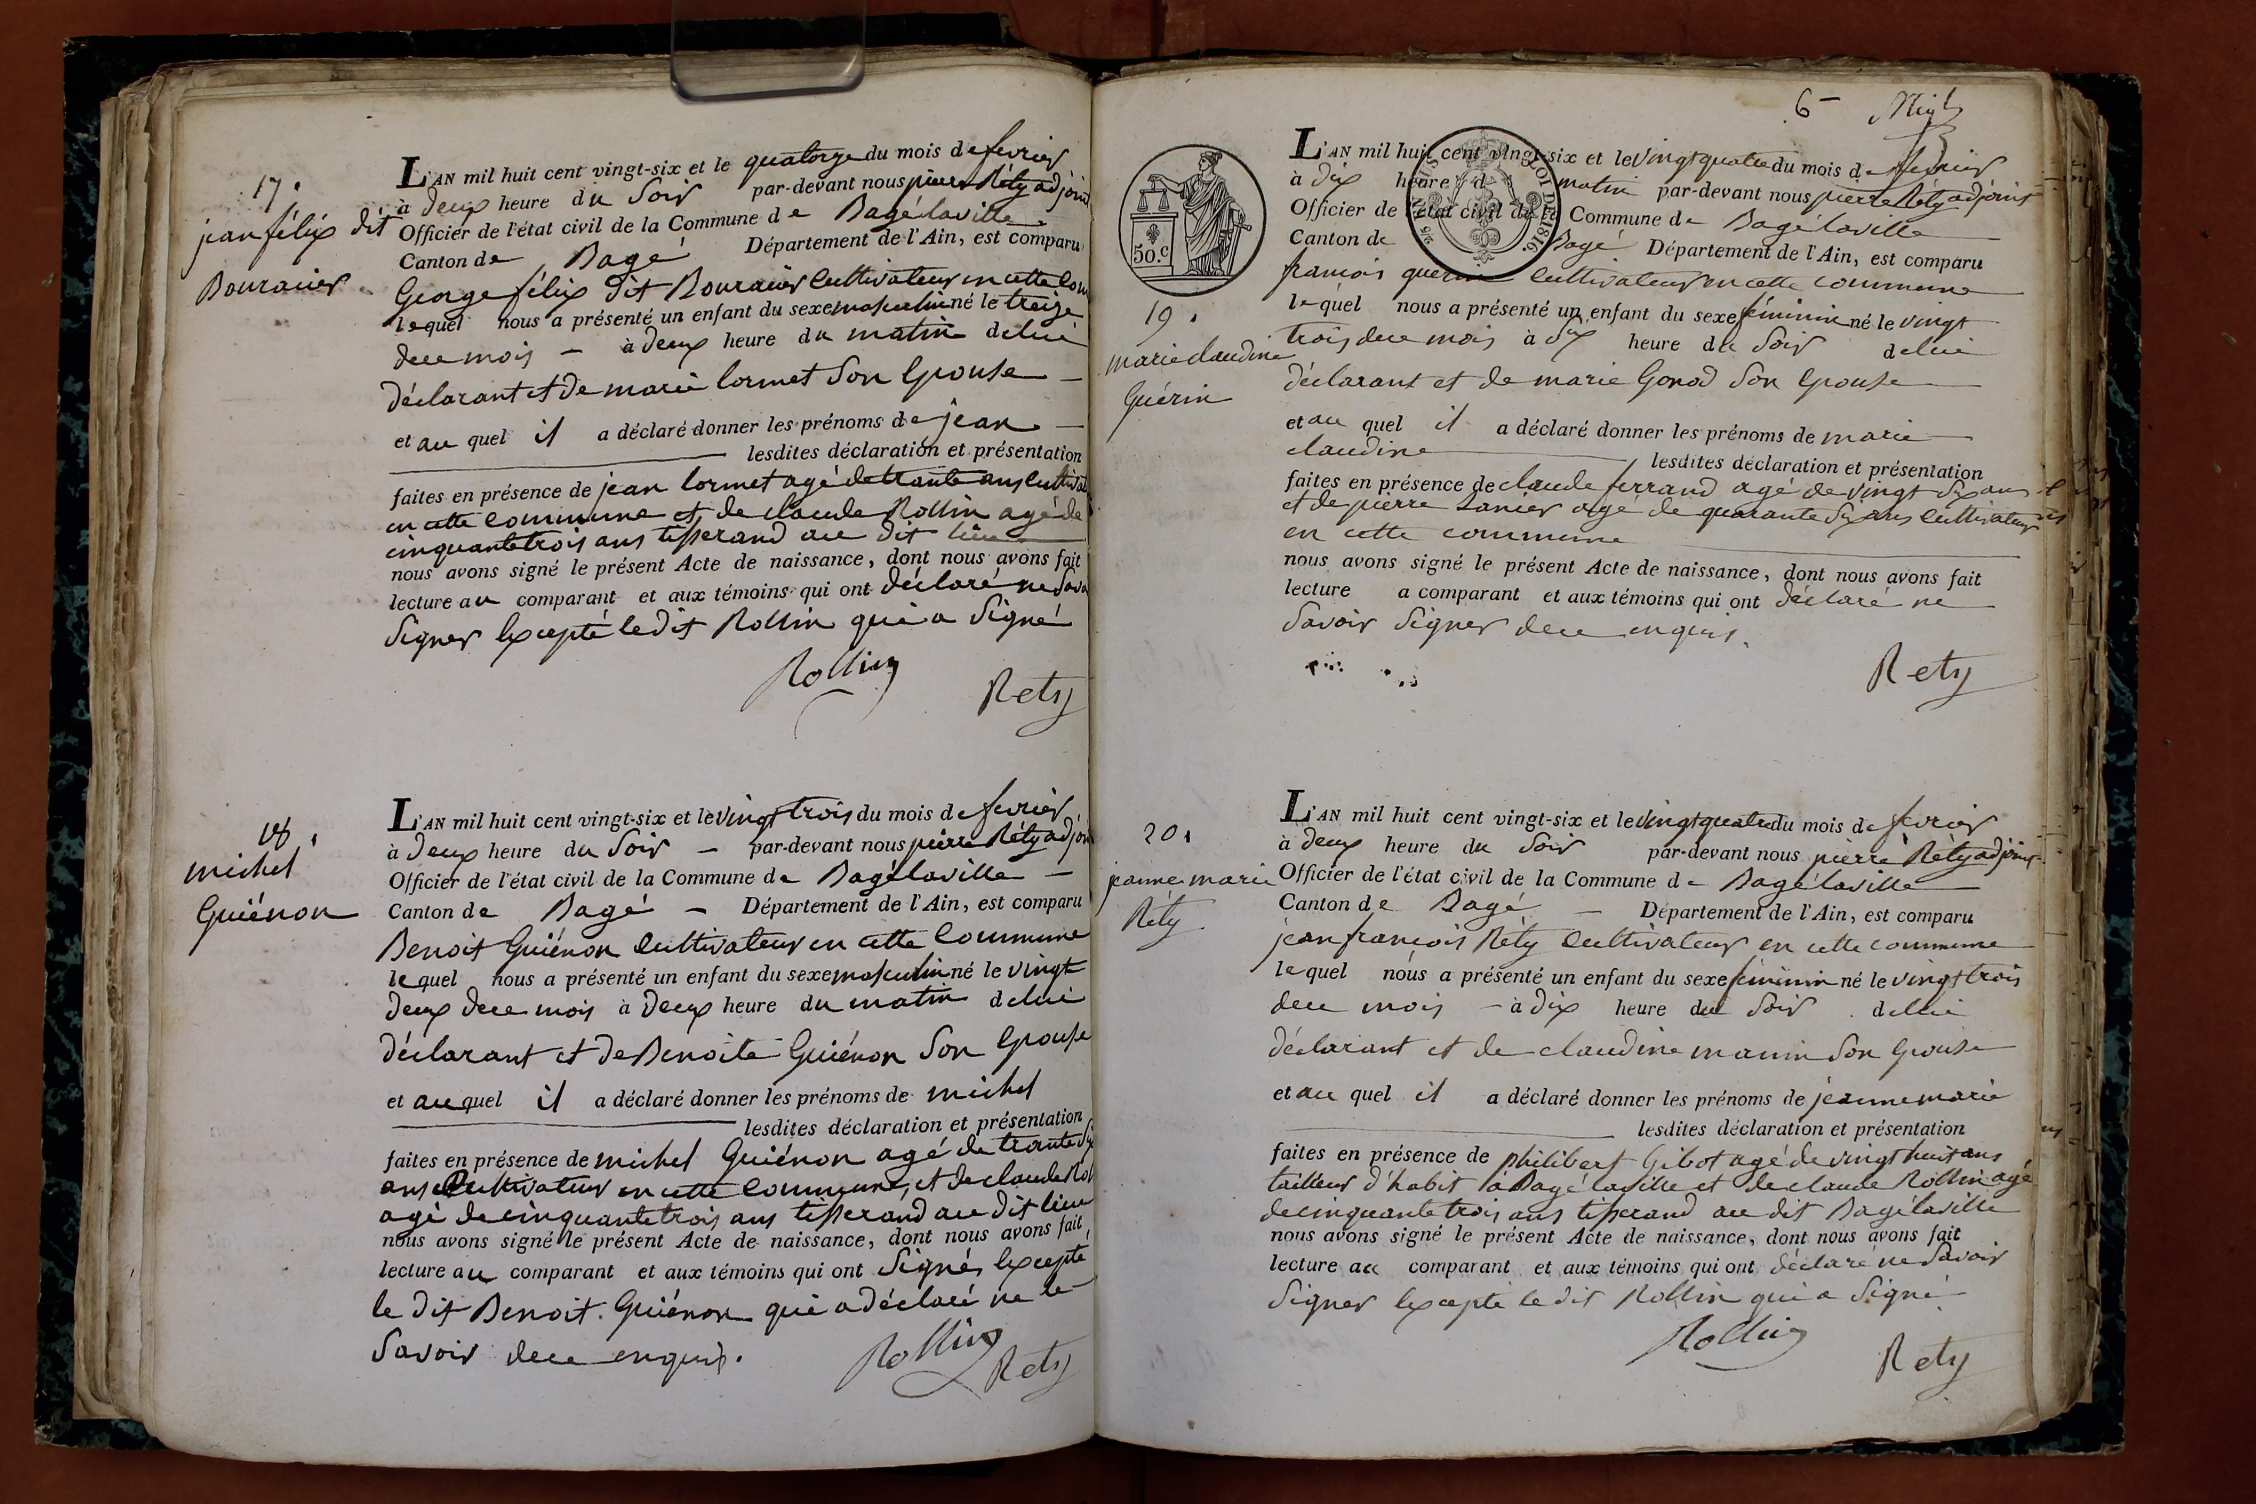 17.
jean félix dit
Bouravier
L'AN mil huit cent vingt-six et le quatorze du mois de fevrier
à deux heure du Soir par-devant nous pierre Réty adjoint
Officier de l'état civil de la Commune de Bagélaville
Canton de Bagé Département de l'Ain, est comparu
George félix dit Bouravier Cultivateur en cette Com
lequel nous a présenté un enfant du sexe masculin né le treize
duce mois — à deux heure du matin de lui
déclarant et de marie lormet Son Epouse —
et au quel il a déclaré donner les prénoms de jean —
lesdites déclaration et présentation
faites en présence de jean lormet agé de trante ans Cultiva
en cette commune et de claude Rollin agé de
cinquantetrois ans tisserand au dit lieu
nous avons signé le présent Acte de naissance, dont nous avons fait
lecture au comparant et aux témoins qui ont déclaré ne Savo
Signer Excepté le dit Rollin qui a Signé
Rollin
Rety
18.
michel
Guiénon
L'AN mil huit cent vingt-six et le vingt trois du mois de fevrier
à deux heure du Soir — par-devant nous pierre Réty adjoin
Officier de l'état civil de la Commune de Bagélaville —
Canton de Bagé — Département de l'Ain, est comparu
Benoit Guiénon Cultivateur en cette Commune
lequel nous a présenté un enfant du sexe masculin né le vingt
deux duce mois à deux heure du matin de lui
déclarant et de Benoite Guiénon Son Epouse
et au quel il a déclaré donner les prénoms de michel
lesdites déclaration et présentation
faites en présence de michel Guiénon agé de trante Six
ans Cultivateur en cette Commune, et de claude Rol
agé de cinquantetrois ans tisserand au dit lieu
nous avons signé le présent Acte de naissance, dont nous avons fait
lecture au comparant et aux témoins qui ont Signés Excepté
le dit Benoit Guiénon qui a déclaré ne le
Savoir duce enquis.
Rollin
Rety
6
50.c
LOI DE 1816.
19.
marie claudine
Guérin
L'AN mil huit cent vingt-six et le vingt quatre du mois de fevrier
à dix heure d matin par-devant nous pierre Réty adjoint
Officier de l'état civil de la Commune de Bagélaville
Canton de Bagé Département de l'Ain, est comparu
francois guerin Cultivateur en cette commune
lequel nous a présenté un enfant du sexe féminin né le vingt
trois duce mois à Six heure du Soir de lui
déclarant et de marie Gonod Son Epouse
et au quel il a déclaré donner les prénoms de marie
claudine lesdites déclaration et présentation
faites en présence de claude ferrand agé de vingt Six ans
et de pierre Lanier agé de quarante Six ans Cultivateurs
en cette commune
nous avons signé le présent Acte de naissance, dont nous avons fait
lecture a comparant et aux témoins qui ont déclaré ne
Savoir Signer duce enquis.
Rety
20.
jeanne marie
Réty
L'AN mil huit cent vingt-six et le vingt quatre du mois de fevrier
à deux heure du Soir par-devant nous pierre Réty adjoint
Officier de l'état civil de la Commune de Bagélaville
Canton de Bagé — Département de l'Ain, est comparu
jean francois Réty Cultivateur en cette commune
lequel nous a présenté un enfant du sexe féminin né le vingt trois
duce mois — à dix heure du Soir de lui
déclarant et de claudine manin Son Epouse
et au quel il a déclaré donner les prénoms de jeanne marie
lesdites déclaration et présentation
faites en présence de philibert Gibot agé de vingt huit ans
tailleur d'habit à Bagélaville et de claude Rollin agé
de cinquante trois ans tisserand au dit Bagélaville
nous avons signé le présent Acte de naissance, dont nous avons fait
lecture au comparant et aux témoins qui ont déclaré ne Savoir
Signer Excepté le dit Rollin qui a Signé
Rollin
Rety